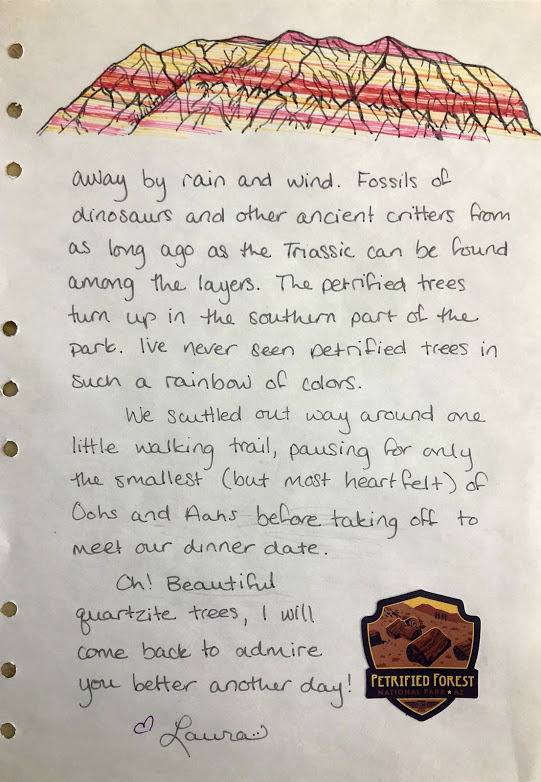 away by rain and wind. Fossils of
dinosaurs and other ancient critters from
as long ago as the Triassic can be found
among the layers. The petrified trees
turn up in the southern part of the
park. I've never seen petrified trees in
such a rainbow of colors.
We scuttled out way around one
little walking trail, pausing for only
the smallest (but most heartfelt) of
Oohs and Aahs before taking off to
meet our dinner date.
Oh! Beautiful
quartzite trees, I will
come back to admire
you better another day!
Laura
PETRIFIED FOREST
NATIONAL PARK ★ AZ